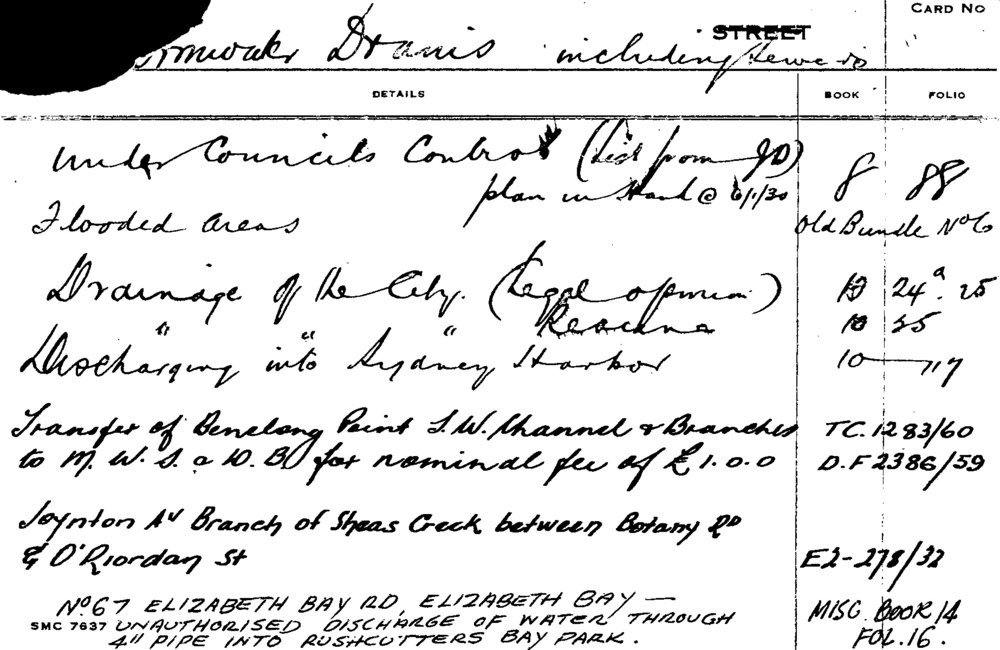 CARD No
STREET
Drains including Sewers
DETAILS BOOK FOLIO
Under Councils Control (List from JD) 8 88
plan in Hand @ 6/1/30
Flooded areas Old Bundle No 6
Drainage of the City. (Legal opinion) 10 24a. 25
" " " 10 25
Discharging into Sydney Harbor 10 — 17
Transfer of Benelong Point S.W. Channel & Branches TC. 1283/60
to M. W. S. & D. B. for nominal fee of £1.0.0 D.F 2386/59
Joynton Av Branch of Sheas Creek between Botany Rd
& O'Riordan St E2-278/32
No 67 ELIZABETH BAY RD, ELIZABETH BAY — MISC. BOOK 14
SMC 7637 UNAUTHORISED DISCHARGE OF WATER THROUGH
4" PIPE INTO RUSHCUTTERS BAY PARK. FOL. 16.